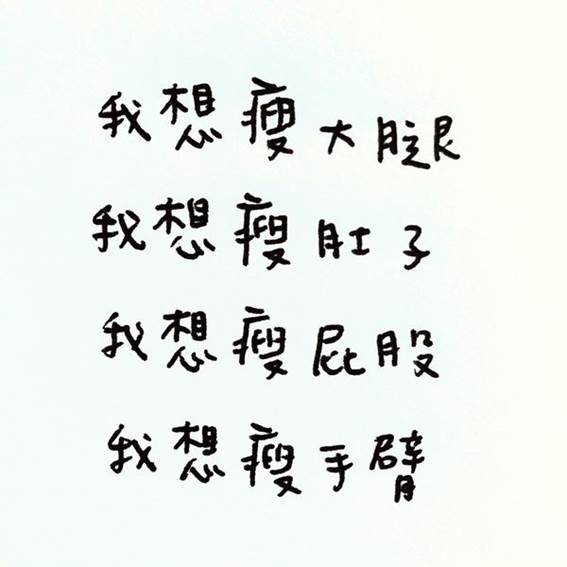 我想瘦大腿
我想瘦肚子
我想瘦屁股
我想瘦手臂